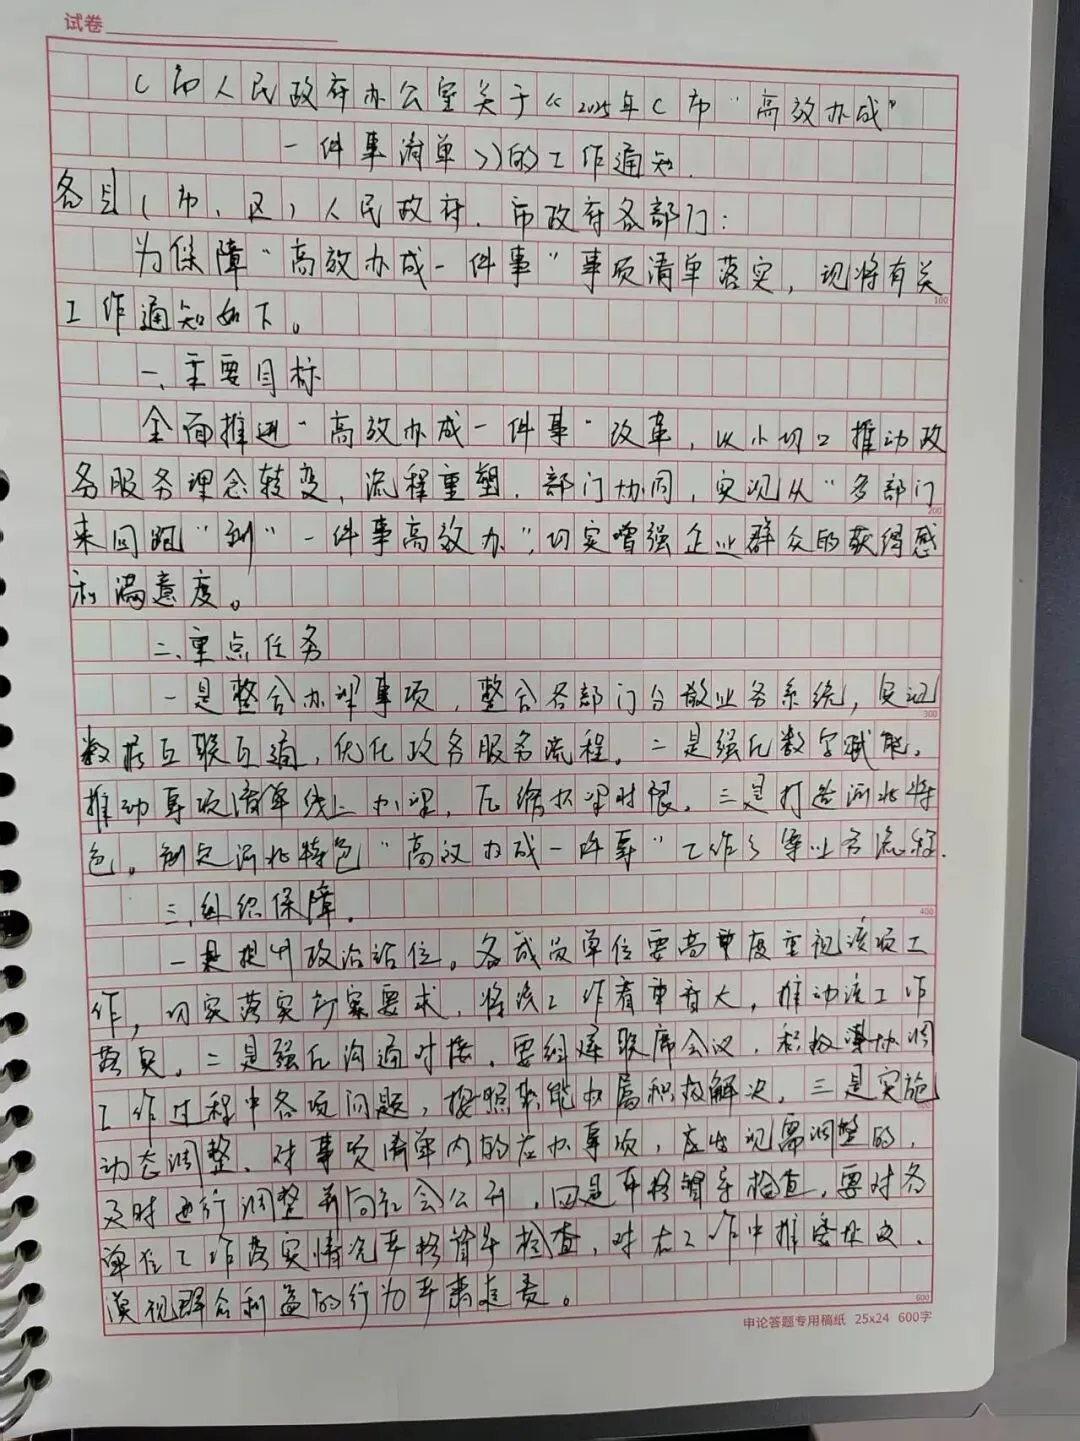 试卷
C市人民政府办公室关于《2025年C市“高效办成”
一件事清单》的工作通知.
各县(市、区)人民政府、市政府各部门：
为保障“高效办成一件事”事项清单落实，现将有关
100
工作通知如下。
一、主要目标
全面推进“高效办成一件事”改革，从小切口推动政
务服务理念转变、流程重塑、部门协同，实现从“多部门
200
来回跑”到“一件事高效办”，切实增强企业群众的获得感
和满意度。
二、重点任务
一是整合办理事项，整合各部门分散业务系统，实现
300
数据互联互通，优化政务服务流程。二是强化数字赋能，
推动事项清单线上办理，压缩办理时限。三是打造河北特
色。制定河北特色“高效办成一件事”工作 等业务流程.
400
三、组织保障.
一是提升政治站位。各成员单位要高度重视该项工
作，切实落实方案要求，将该工作 推动该工作
落实。二是强化沟通对接，要组建联席会议，积极 协调
工作过程中各项问题，按照职能 属积极解决，三是实施
动态调整、对事项清单内的应办事项，应出现需调整的，
及时进行调整并向社会公开，四是严格督导检查，要对各
单位工作落实情况严格督导检查，对在工作中推诿
漠视群众利益的行为严肃追责。
600
申论答题专用稿纸 25x24 600字